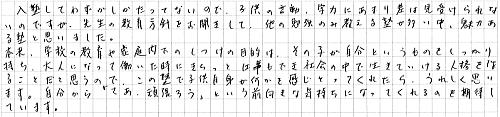 入塾してわずかしかたってないので、子供の言動、学力にあまり差は見受けられな
いのですが、先生の教育方針をお聞きして、他の勉強のみ教える塾が多い中、魅力あ
る塾と思いました。
本来、学校の教育や家庭内でのしつけの目的は、その子が自分というものをしっかり
持ち、大人になって働いた時にきちっと仕事もでき社会の中で生きていける人格を作
ることだと思うので、この塾で子供自身が何かを感じとってくれたら、うれしく思い
ます。自分から「であ、頑張ろう」という前向きな気持ちになってくれるのを期待し
ています。